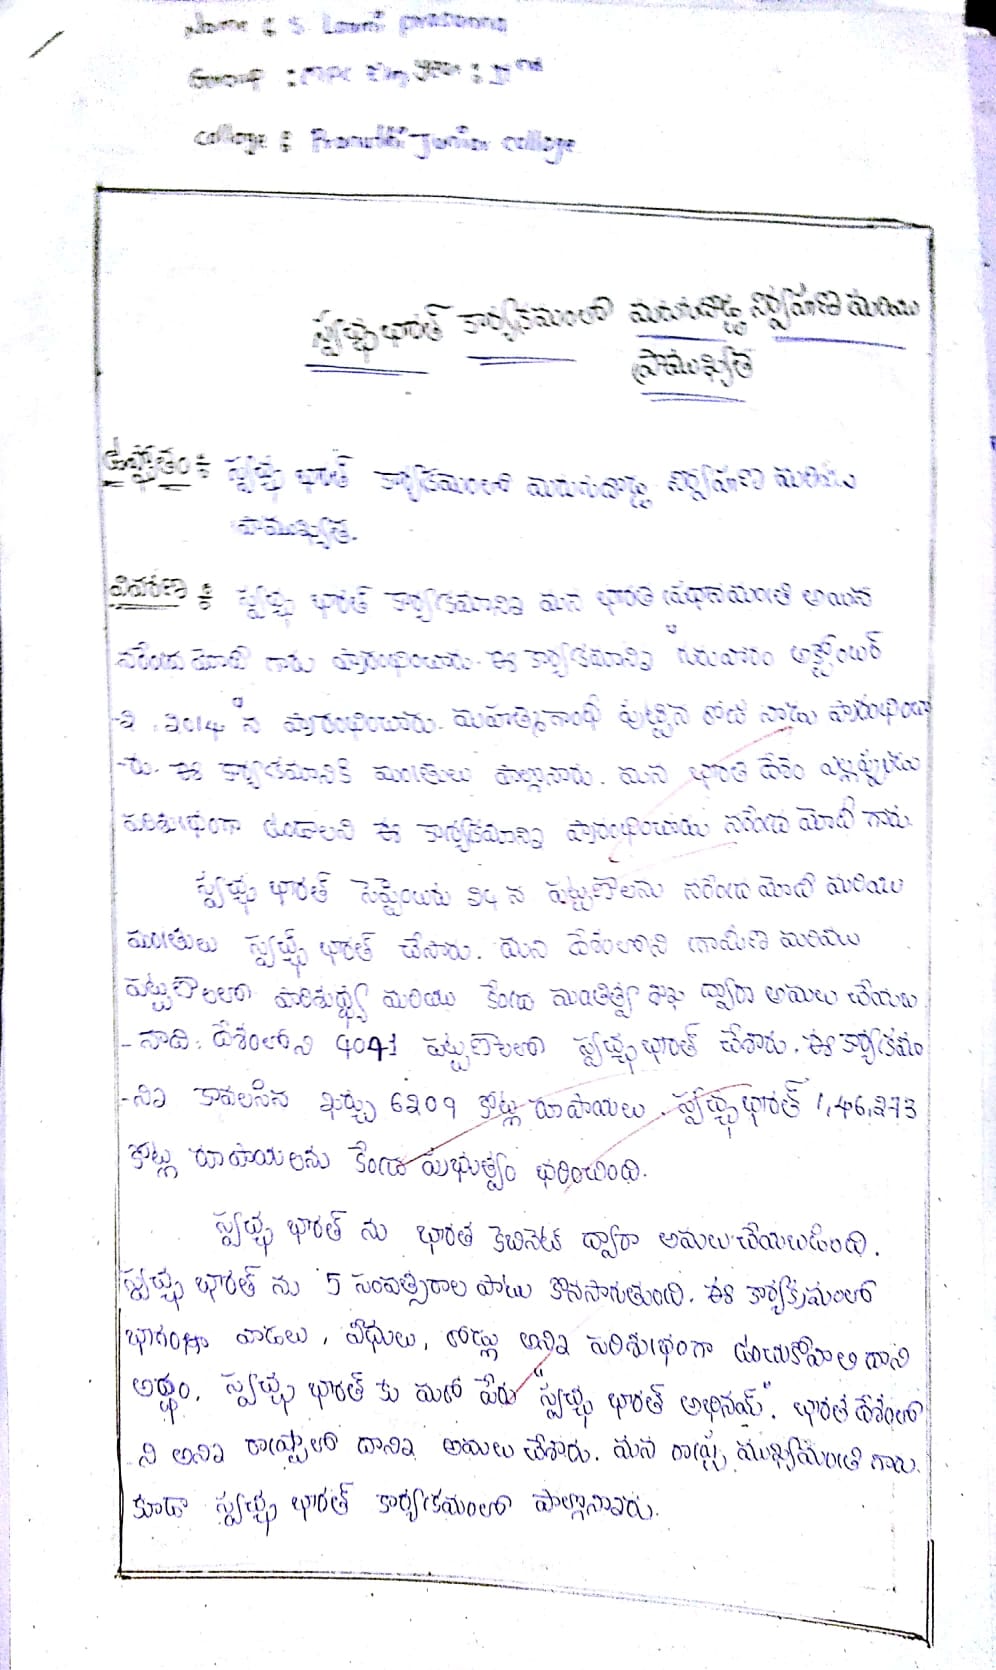 Name : S. Laxmi prasanna
Group : MPC Eng year : IInd
College : Junior college
స్వచ్ఛ భారత్ కార్యక్రమంలో మరుగుదొడ్ల నిర్వహణ మరియు
ప్రాముఖ్యత
ఉద్దేశ్యం : స్వచ్ఛ భారత్ కార్యక్రమంలో మరుగుదొడ్ల నిర్వహణ మరియు
ప్రాముఖ్యత.
వివరణ : స్వచ్ఛ భారత్ కార్యక్రమాన్ని మన భారత ప్రధానమంత్రి అయిన
నరేంద్ర మోది గారు ప్రారంభించారు. ఈ కార్యక్రమాన్ని గురువారం అక్టోబర్
-2, 2014 న ప్రారంభించారు. మహాత్మగాంధీ పుట్టిన రోజు నాడు ప్రారంభించా
-రు. ఈ కార్యక్రమానికి మంత్రులు పాల్గొన్నారు. మన భారత దేశం ఎల్లప్పుడు
పరిశుభ్రంగా ఉండాలని ఈ కార్యక్రమాన్ని ప్రారంభించారు నరేంద్ర మోదీ గారు.
స్వచ్ఛ భారత్ సెప్టెంబరు 24 న పట్టణాలను నరేంద్ర మోది మరియు
మంత్రులు స్వచ్ఛ భారత్ చేసారు. మన దేశంలోని గ్రామీణ మరియు
పట్టణాలలో పారిశుద్ధ్య మరియు కేంద్ర మంత్రిత్వ శాఖ ద్వారా అమలు చేయబ
-నాది. దేశంలోని 4041 పట్టణాలలో స్వచ్ఛ భారత్ చేశారు. ఈ కార్యక్రమం
-నికి కావలసిన ఖర్చు 6209 కోట్లు రూపాయలు. స్వచ్ఛ భారత్ 1,46,273
కోట్లు రూపాయలను కేంద్ర ప్రభుత్వం భరించింది.
స్వచ్ఛ భారత్ ను భారత కెబినెట్ ద్వారా అమలు చేయబడింది.
స్వచ్ఛ భారత్ ను 5 సంవత్సరాల పాటు కొనసాగుతుంది. ఈ కార్యక్రమంలో
భాగంగా వాడలు, వీధులు, రోడ్లు అన్ని పరిశుభ్రంగా ఉంచుకోవాలి దాని
అర్థం. స్వచ్ఛ భారత్ కు మరో పేరు "స్వచ్ఛ భారత్ అభినయ్". భారత దేశంలో
ని అన్ని రాష్ట్రాలలో దానిని అమలు చేశారు. మన రాష్ట్ర ముఖ్యమంత్రి గారు
కూడా స్వచ్ఛ భారత్ కార్యక్రమంలో పాల్గొన్నారు.